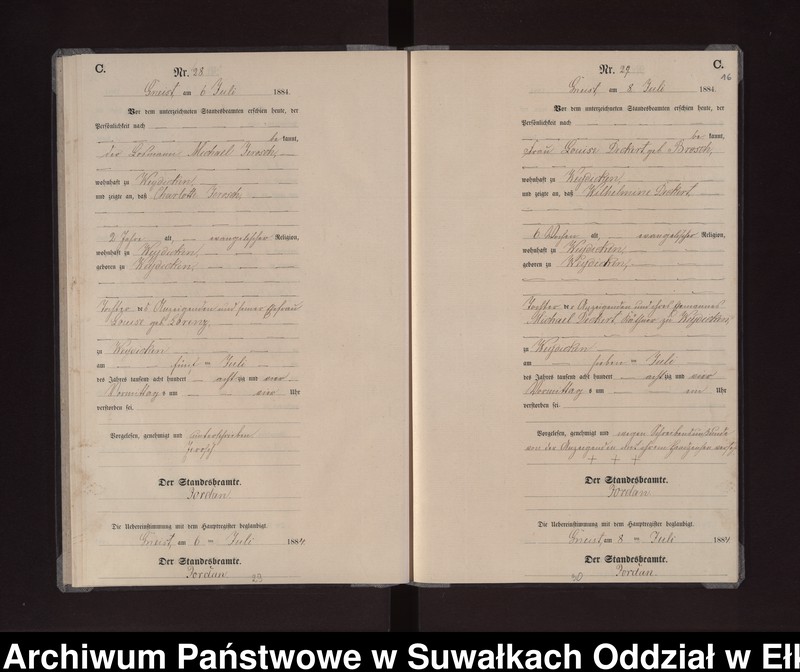 C.
Nr. 28
Gneist am 6 Juli 1884.
Vor dem unterzeichneten Standesbeamten erschien heute, der
Persönlichkeit nach
be kannt,
der Losmann Michael Jerosch,
wohnhaft zu Weydicken
und zeigte an, daß Charlotte Jerosch,
2 Jahre alt, evangelischer Religion,
wohnhaft zu Weydicken,
geboren zu Weydicken,
Tochter des Anzeigenden und seiner Ehefrau
Louise geb Lorenz
zu Weydicken
am fünf ten Juli
des Jahres tausend acht hundert achtzig und vier
Vormittag s um vier Uhr
verstorben sei.
Vorgelesen, genehmigt und unterschrieben
Jerosch
Der Standesbeamte.
Jordan
Die Uebereinstimmung mit dem Hauptregister beglaubigt.
Gneist, am 6 ten Juli 1884
Der Standesbeamte.
Jordan
29
C.
16
Nr. 29
Gneist am 8 Juli 1884.
Vor dem unterzeichneten Standesbeamten erschien heute, der
Persönlichkeit nach
be kannt,
Frau Louise Deckert geb Brosch,
wohnhaft zu Weydicken
und zeigte an, daß Wilhelmine Deckert
6 Wochen alt, evangelischer Religion,
wohnhaft zu Weydicken,
geboren zu Weydicken,
Tochter der Anzeigenden und ihres Ehemannes
Michael Deckert Käthner zu Weydicken
zu Weydicken
am sieben ten Juli
des Jahres tausend acht hundert achtzig und vier
Vormittag s um ein Uhr
verstorben sei.
Vorgelesen, genehmigt und wegen Schreibensunkunde
von der Anzeigenden mit ihrem Handzeichen
+ + +
Der Standesbeamte.
Jordan
Die Uebereinstimmung mit dem Hauptregister beglaubigt.
Gneist, am 8 ten Juli 1884
Der Standesbeamte.
Jordan
30
Archiwum Państwowe w Suwałkach Oddział w Ełk